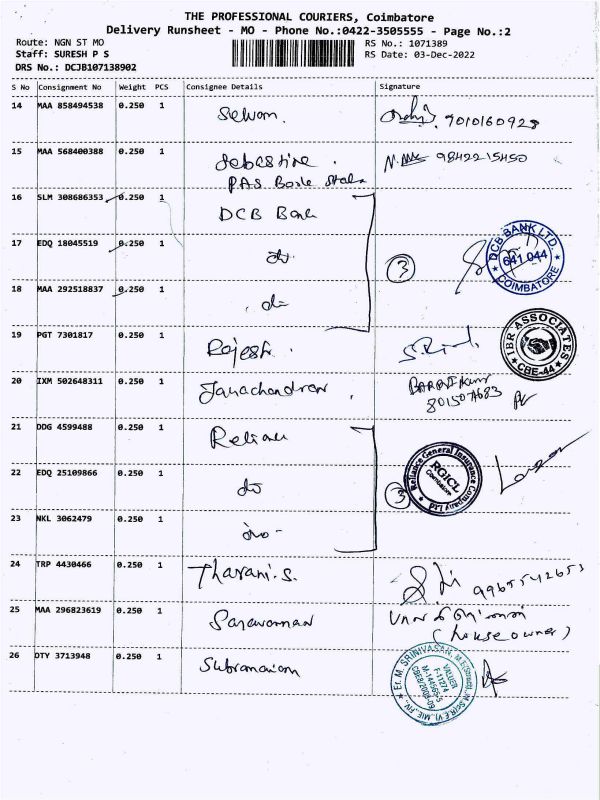 THE PROFESSIONAL COURIERS, Coimbatore
Delivery Runsheet - MO - Phone No.:0422-3505555 - Page No.:2
Route: NGN ST MO
RS No.: 1071389
Staff: SURESH P S
RS Date: 03-Dec-2022
DRS No.: DCJB107138902
S No Consignment No Weight PCS Consignee Details Signature
14 MAA 858494538 0.250 1 Selvam. 9010160928
15 MAA 568400388 0.250 1 Sebastine. 9842215450
PAS Bosle
16 SLM 308686353 0.250 1 DCB Bank
17 EDQ 18045519 0.250 1 do 3
DCB BANK LTD. 641 044 COIMBATORE
18 MAA 292518837 0.250 1 do
19 PGT 7301817 0.250 1 Rajesh.
IBR ASSOCIATES CBE-44
20 IXM 502648311 0.250 1 Jayachandran
21 DDG 4599488 0.250 1 Reliance
22 EDQ 25109866 0.250 1 do 3
Reliance General Insurance Company Ltd RGICL Coimbatore
23 NKL 3062479 0.250 1 do
24 TRP 4430466 0.250 1 Tharani.S. 9965542653
25 MAA 296823619 0.250 1 Saravanan
(house owner)
26 DTY 3713948 0.250 1 Subramaniam
Er. M. SRINIVASAN, VALUER F-11274